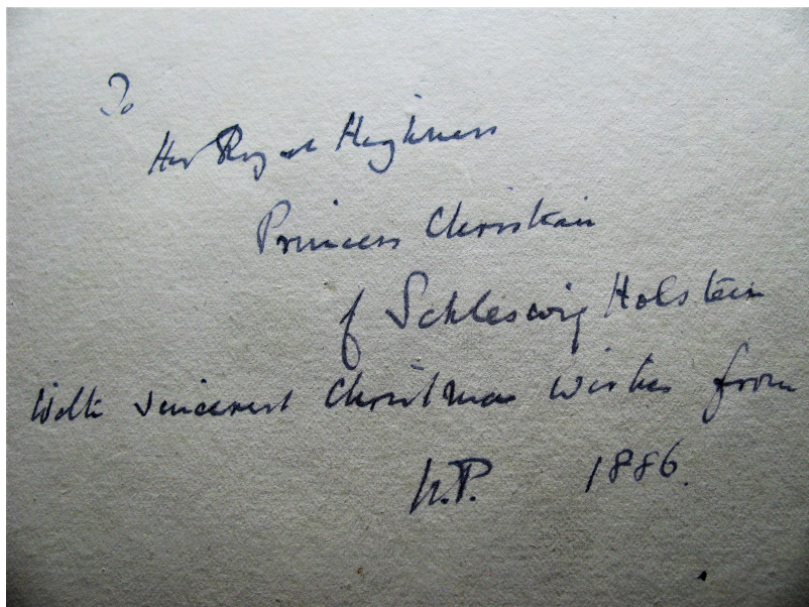 To
Her Royal Highness
Princess Christian
of Schleswig Holstein
With sincerest Christmas Wishes from
1886.